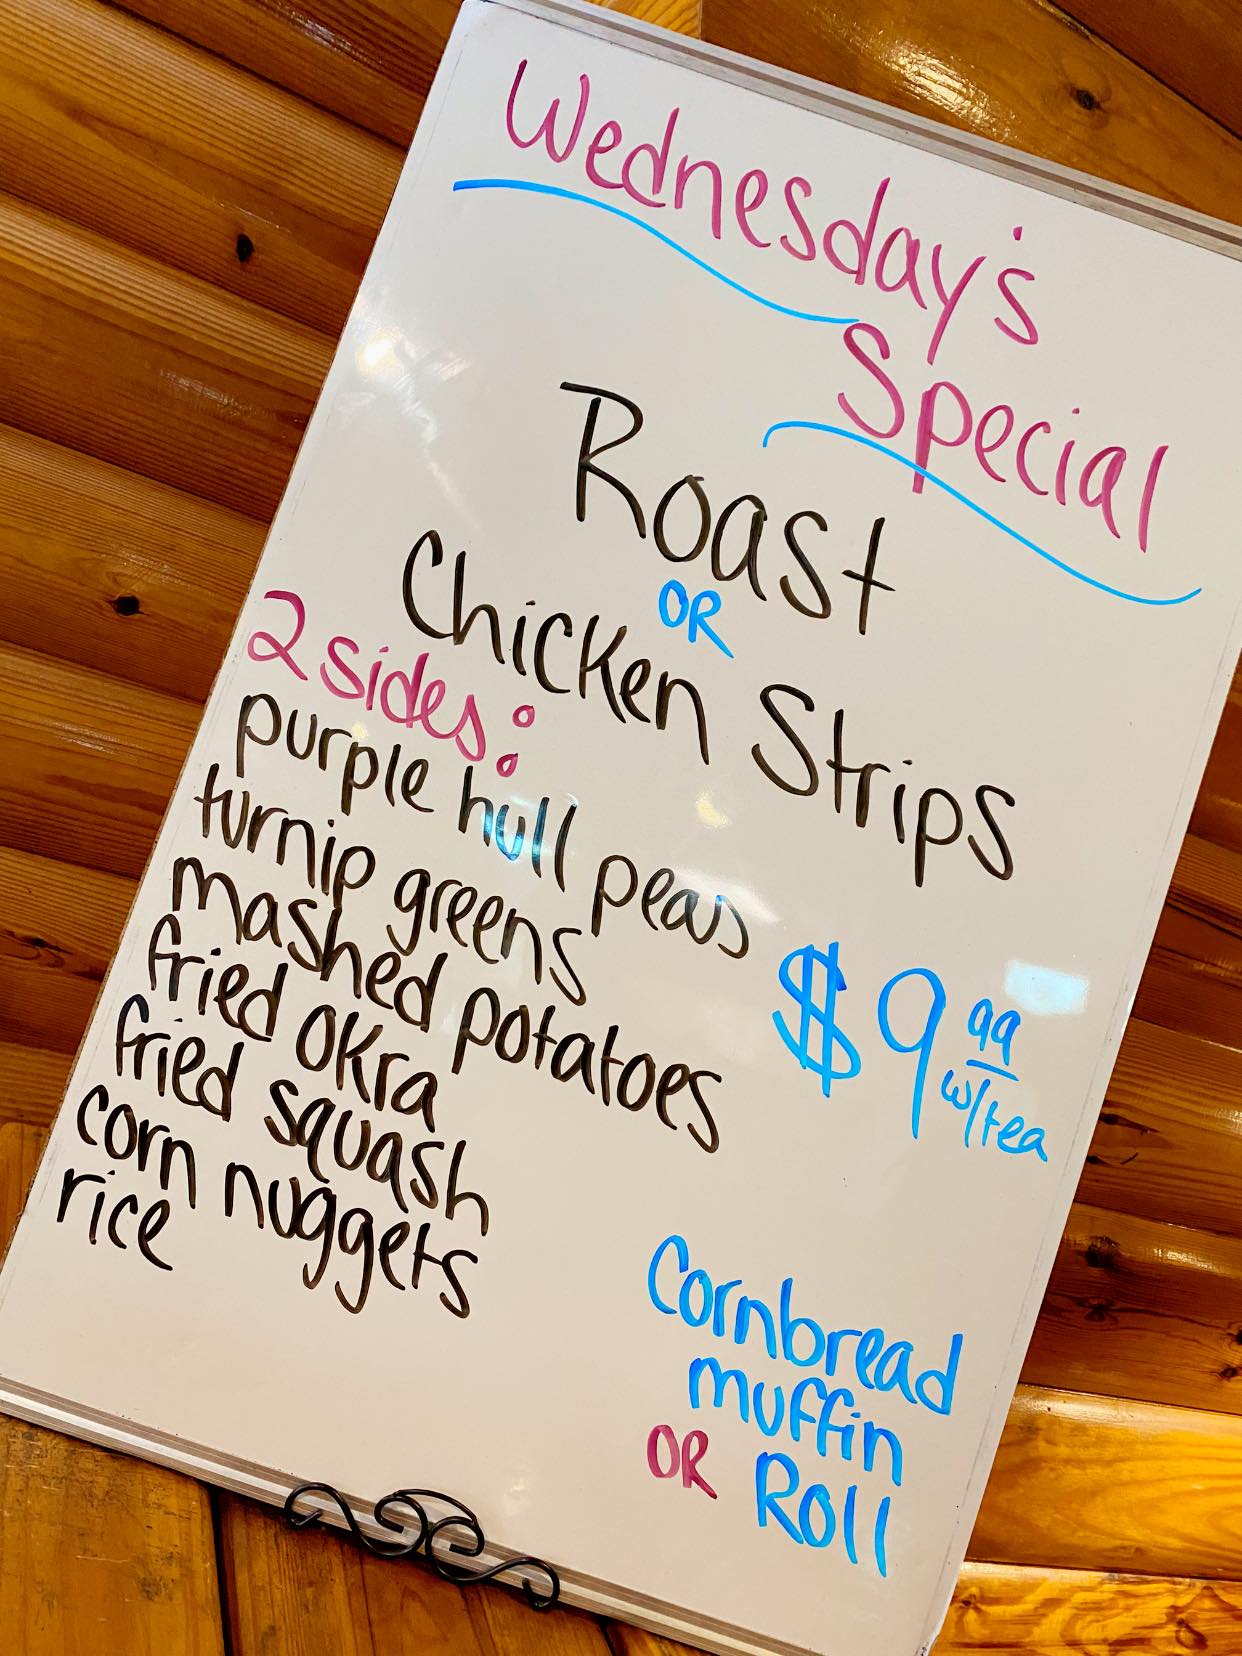 Wednesday's
Special
Roast
OR
Chicken Strips
2 sides:
purple hull peas
turnip greens
mashed potatoes
fried okra
fried squash
corn nuggets
rice
$9.99
w/tea
Cornbread
muffin
OR Roll